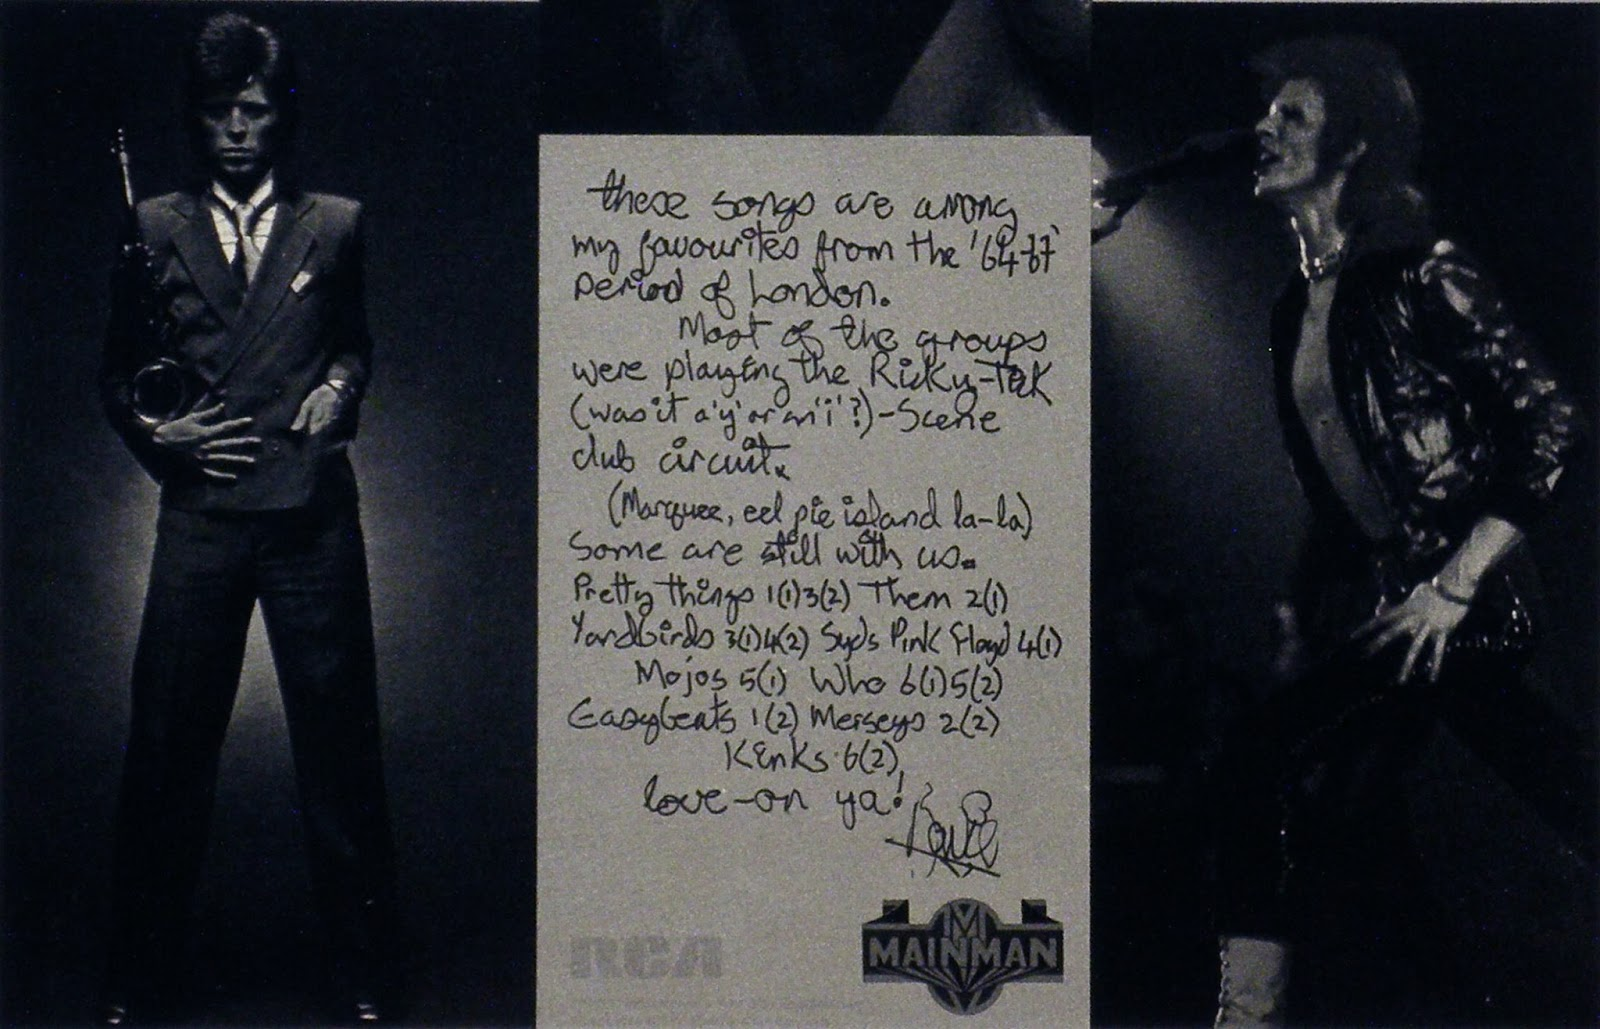 these songs are among
my favourites from the '64-67'
period of London.
Most of the groups
were playing the Ricky-Tick
(was it a 'y' or an 'i'?)-Scene
club circuit.
(Marquee, eel pie island la-la)
Some are still with us.
Pretty things 1(1)3(2) Them 2(1)
Yardbirds 3(1)4(2) Syds Pink Floyd 4(1)
Mojos 5(1) Who 6(1)5(2)
Easybeats 1(2) Merseys 2(2)
Kinks 6(2)
love-on ya!
Bowie
RCA
M
MAINMAN